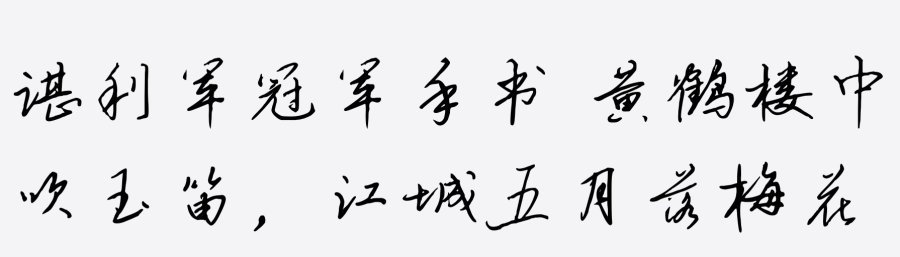 谌利军冠军手书 黄鹤楼中
吹玉笛，江城五月落梅花